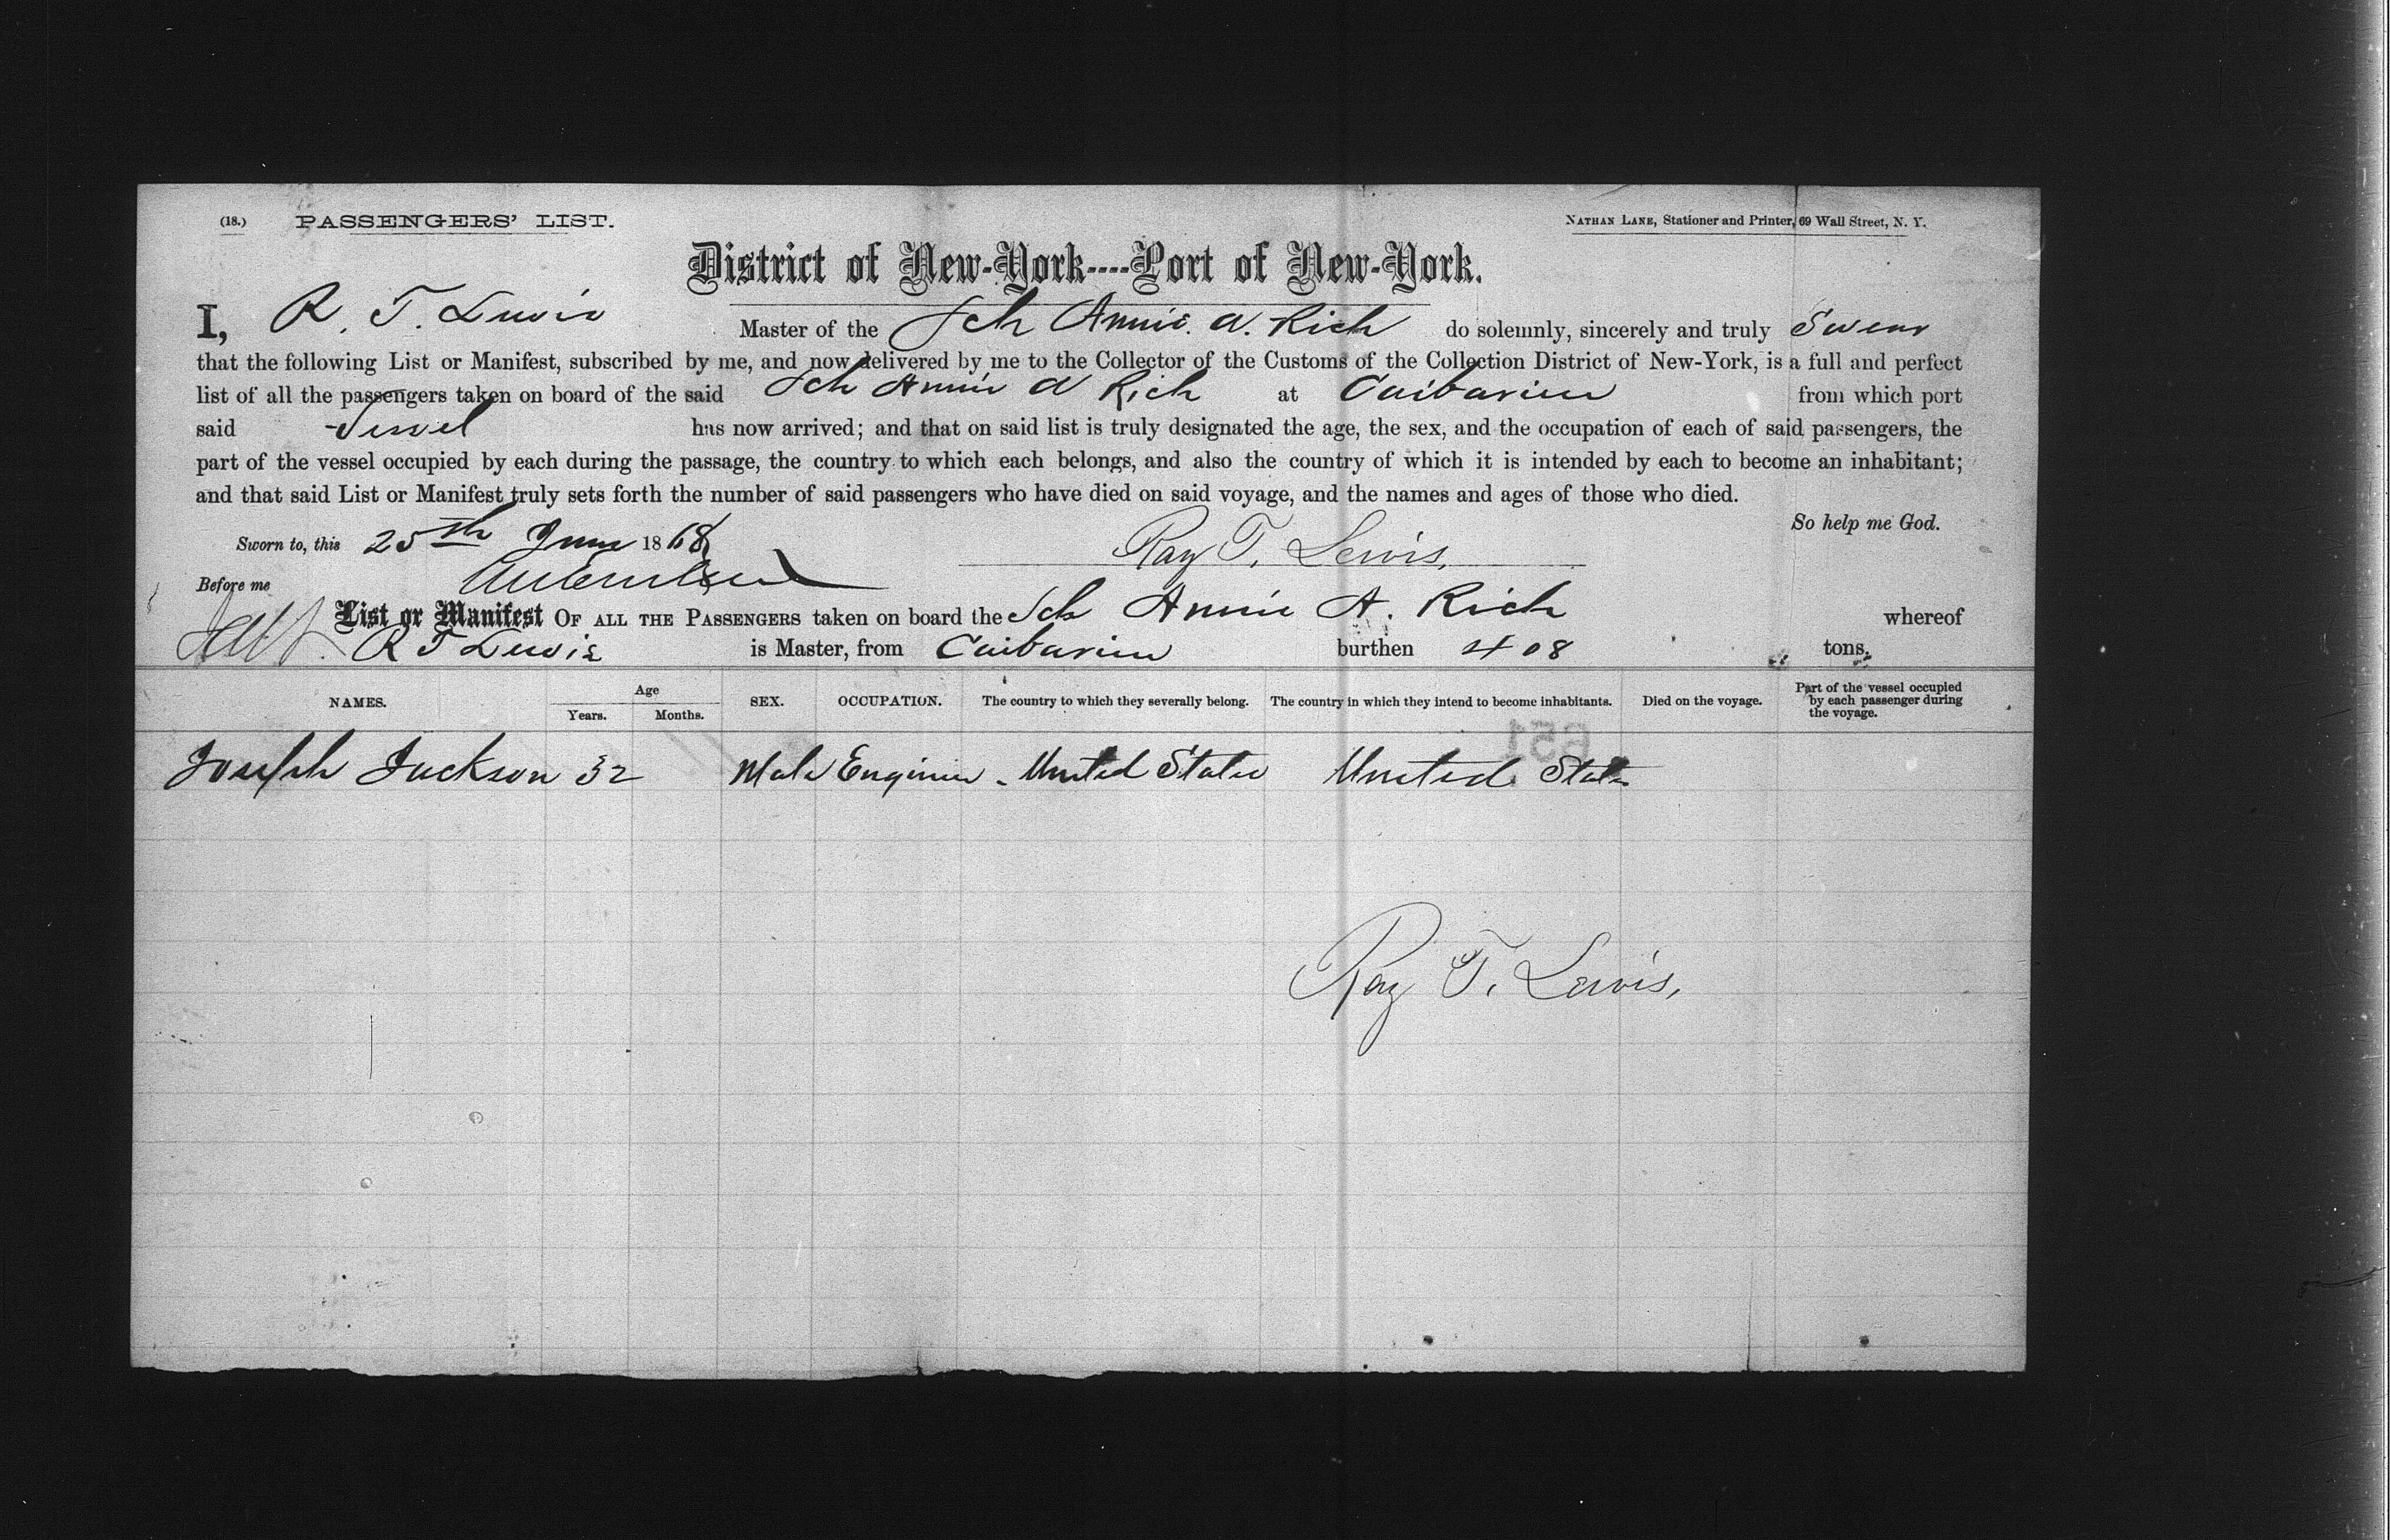 (18.) PASSENGERS' LIST. NATHAN LANE, Stationer and Printer, 69 Wall Street, N. Y.
District of New-York----Port of New-York.
I, R. T. Lewis Master of the Sch Annie. A. Rich do solemnly, sincerely and truly Swear
that the following List or Manifest, subscribed by me, and now delivered by me to the Collector of the Customs of the Collection District of New-York, is a full and perfect
list of all the passengers taken on board of the said Sch Annie A Rich at Caibarien from which port
said Vessel has now arrived; and that on said list is truly designated the age, the sex, and the occupation of each of said passengers, the
part of the vessel occupied by each during the passage, the country to which each belongs, and also the country of which it is intended by each to become an inhabitant;
and that said List or Manifest truly sets forth the number of said passengers who have died on said voyage, and the names and ages of those who died.
So help me God.
Sworn to, this 25th June 1868 Ray T. Lewis.
Before me
List or Manifest OF ALL THE PASSENGERS taken on board the Sch Annie A. Rich whereof
R T Lewis is Master, from Caibarien burthen 408 tons.
NAMES. Age Years. Months. SEX. OCCUPATION. The country to which they severally belong. The country in which they intend to become inhabitants. Died on the voyage. Part of the vessel occupied by each passenger during the voyage.
651
Joseph Jackson 32 Male Engineer - United States United States
Ray T. Lewis.